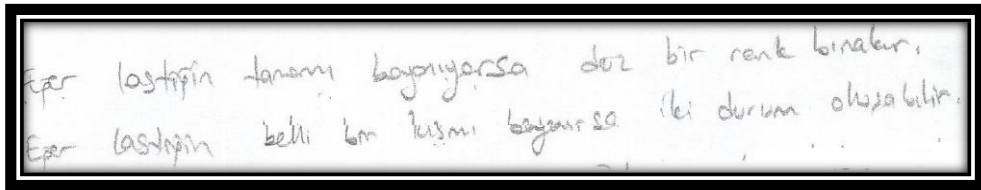 Eğer lastiğin tamamı boyanıyorsa düz bir renk bırakır.
Eğer lastiğin belli bir kısmı boyanırsa iki durum oluşabilir.